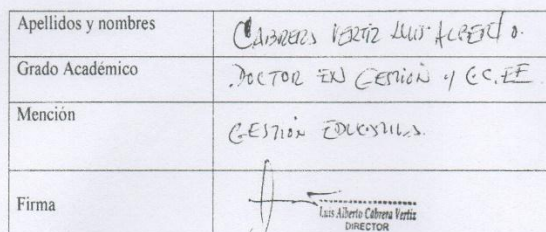 Apellidos y nombres
CABRERA VERTIZ LUIS ALBERTO.
Grado Académico
DOCTOR EN GESTIÓN Y CC.EE
Mención
GESTIÓN EDUCATIVA.
Firma
Luis Alberto Cabrera Vertiz
DIRECTOR